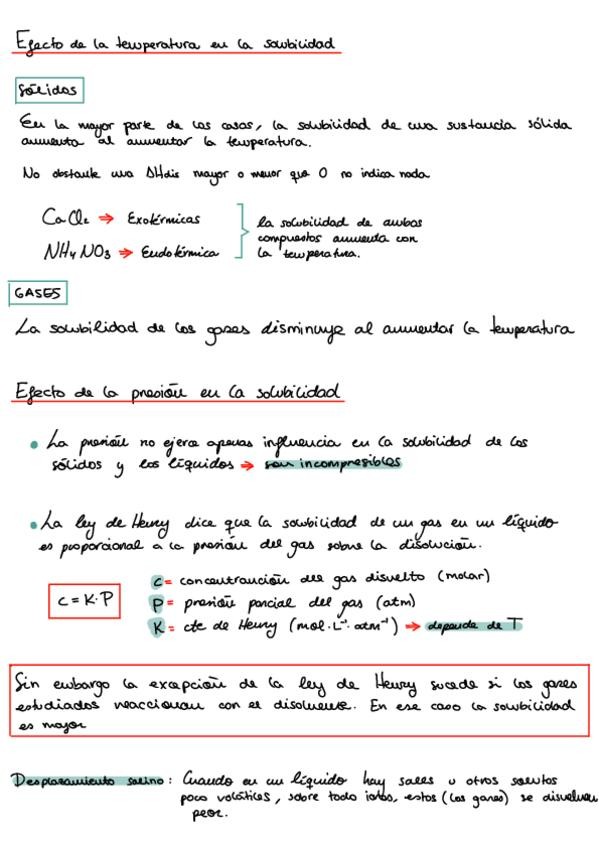 Efecto de la temperatura en la solubilidad
SÓLIDOS
En la mayor parte de los casos, la solubilidad de una sustancia sólida
aumenta al aumentar la temperatura.
No obstante una ΔHdis mayor o menor que 0 no indica nada
CaCl₂ → Exotérmicas
NH₄NO₃ → Endotérmica
la solubilidad de ambos
compuestos aumenta con
la temperatura.
GASES
La solubilidad de los gases disminuye al aumentar la temperatura
Efecto de la presión en la solubilidad
• La presión no ejerce apenas influencia en la solubilidad de los
sólidos y los líquidos → son incompresibles
• La ley de Henry dice que la solubilidad de un gas en un líquido
es proporcional a la presión del gas sobre la disolución.
c = K·P
C = concentración del gas disuelto (molar)
P = presión parcial del gas (atm)
K = cte de Henry (mol·L⁻¹·atm⁻¹) → depende de T
Sin embargo la excepción de la ley de Henry sucede si los gases
estudiados reaccionan con el disolvente. En ese caso la solubilidad
es mayor
Desplazamiento salino: Cuando en un líquido hay sales u otros solutos
poco volátiles, sobre todo iones, estos (los gases) se disuelven
peor.